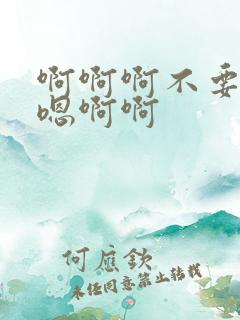 啊啊啊不要
嗯啊啊
何应钦
未经同意禁止转载